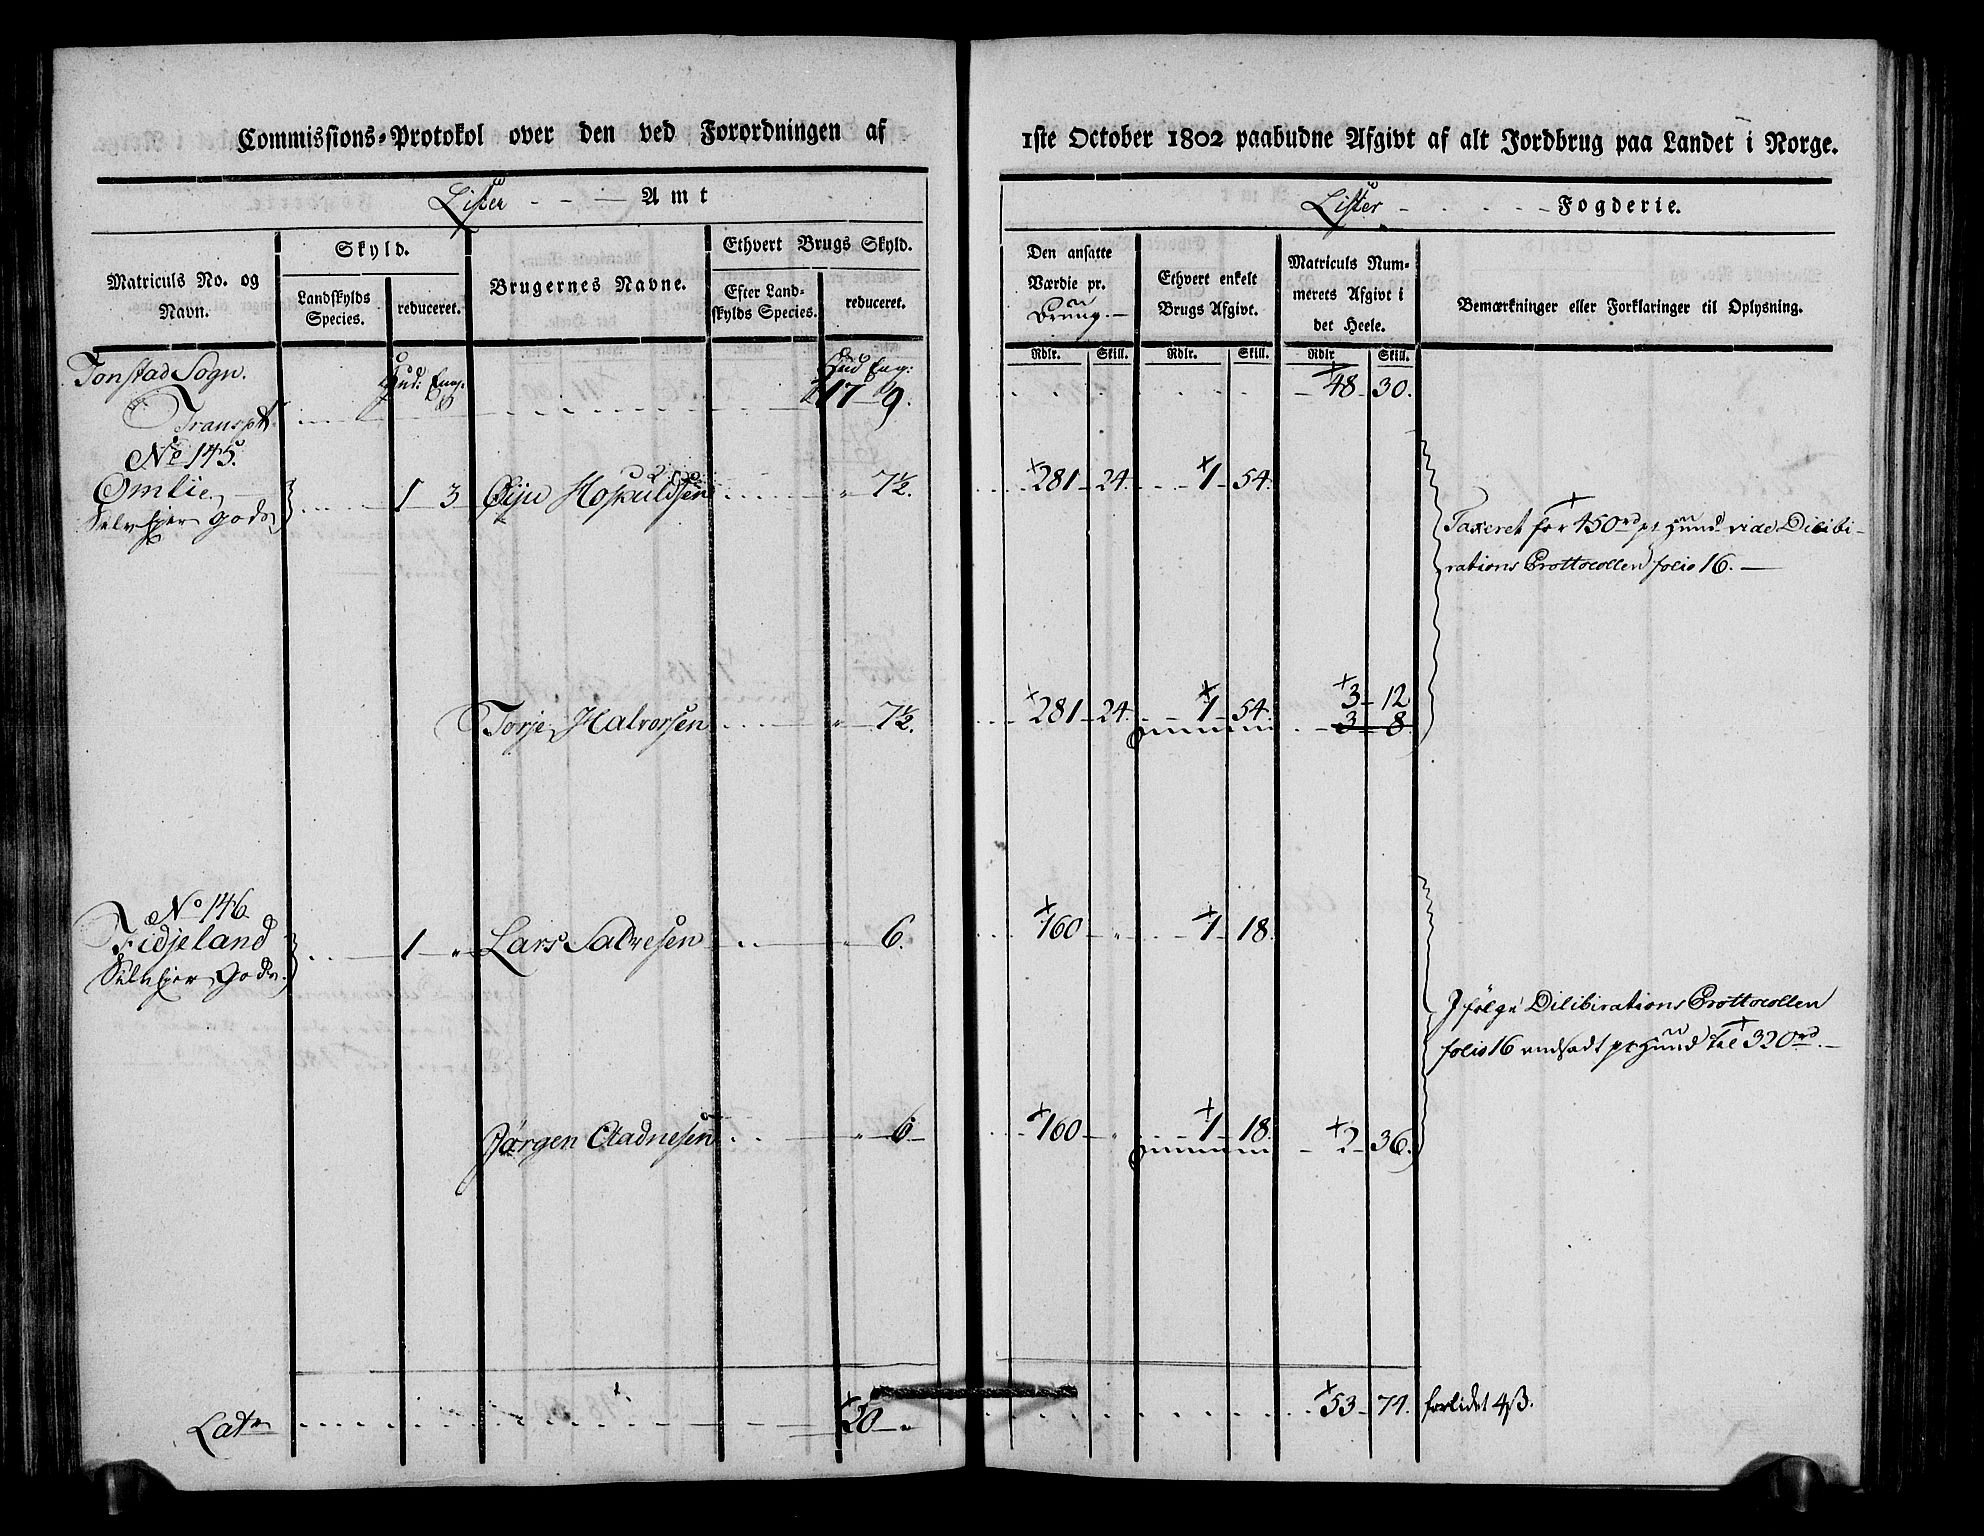 Commissions-Protokol over den ved Forordningen af
1ste October 1802 paabudne Afgivt af alt Jordbrug paa Landet i Norge.
Lister Amt
Lister Fogderie.
Matriculs No. og Navn.
Skyld.
Landskylds Species.
reduceret.
Brugernes Navne.
Ethvert Brugs Skyld.
Efter Landskylds Species.
reduceret.
Den ansatte Værdie pr.
Ethvert enkelt Brugs Afgivt.
Matriculs Nummerets Afgivt i det Heele.
Bemærkninger eller Forklaringer til Oplysning.
Rdlr. Skill. Rdlr. Skill. Rdlr. Skill.
Tonstad Sogn. Hud: Eng: Hud Eng:
Transpt. 17 9. 48 30.
No 145.
Omlie 1 3 Hoskuldsen " 7½. 281 24. 1 54.
Selveier gods
Taxeret for 450rd pr Huud vide Dilibi-
rations Prottocollen folio 16.
Torje Halvorsen " 7½. 281 24. 1 54. 3 12
3 8
No 146.
Fidjeland 1 " Lars Salvesen " 6. 160 " 1 18.
Selveier Gods.
Ifølge Dilibirations Prottocollen
folio 16 ansadt pr Huud til 320rd.
Jørgen Aadnesen " 6 160 " 1 18. 2 36.
Latr 20 " 53 74. forlidet 4 β.